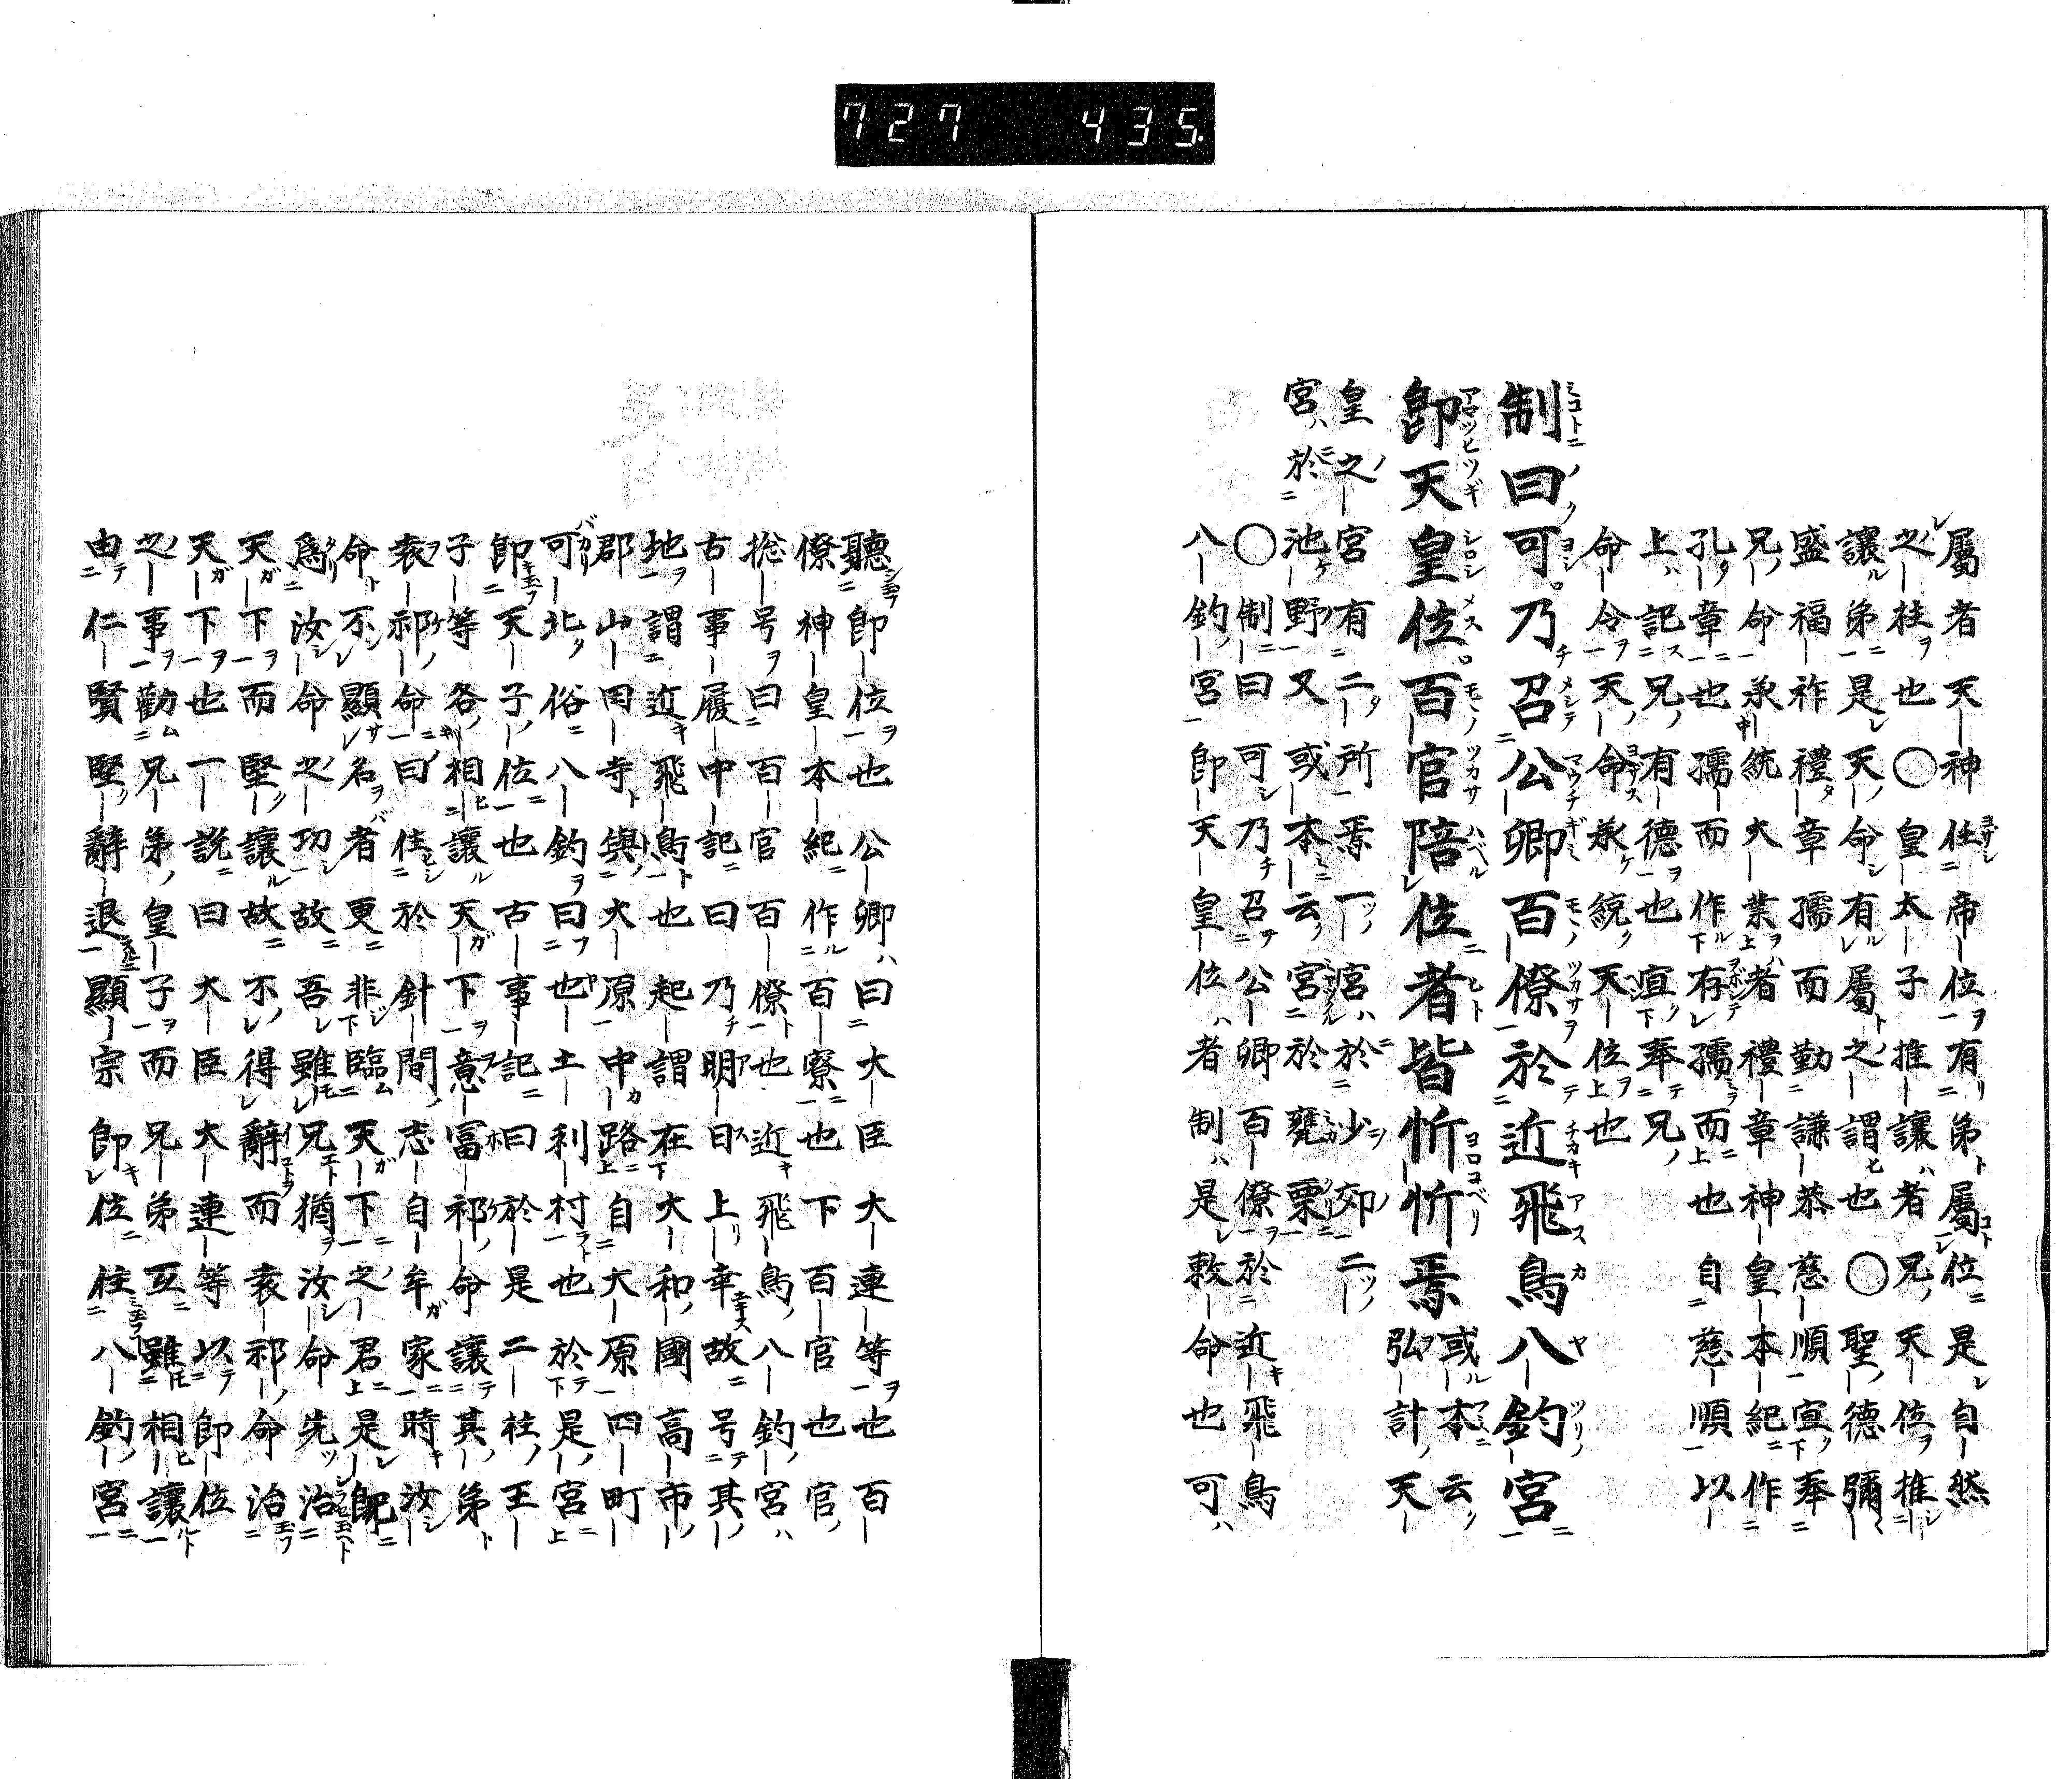 727 435.
屬者天神任帝位有弟屬位是自然
之柱也〇皇太子推讓者兄天位推
讓弟是天命有屬之謂也〇聖德彌
盛福祚禮章孺而勤謙恭慈順宣奉
兄命承統大業者禮章神皇本紀作
孔章也孺而作存孺而也自慈順以
上記兄有德也宜奉兄
命令天命承統天位也
制曰可乃召公卿百僚於近飛鳥八釣宮
即天皇位百官陪位者皆忻忻焉
或本云
弘計天
皇之宮有二所焉一宮於少郊二
宮於池野又或本云宮於甕栗
〇制曰可乃召公卿百僚於近飛鳥
八釣宮即天皇位者制是敕命也可
聽即位也公卿曰大臣大連等也百
僚神皇本紀作百寮也下百官也官
揔号曰百官百僚也近飛鳥八釣宮
古事履中記曰乃明日上幸故号其
地謂近飛鳥也起謂在大和國高市
郡山岡寺與大原中路自大原四町
可北俗八釣曰也土利村也於是宮
即天子位也古事記曰於是二柱王
子等各相讓天下意富祁命讓其弟
袁祁命曰住於針間志自牟家時汝
命不顯名者更非臨天下之君是既
爲汝命之功故吾雖兄猶汝命先治
天下而堅讓故不得辭而袁祁命治
天下也一說曰大臣大連等以即位
之事勸兄弟皇子而兄弟互雖相讓
由仁賢堅辭退顯宗即位住八釣宮